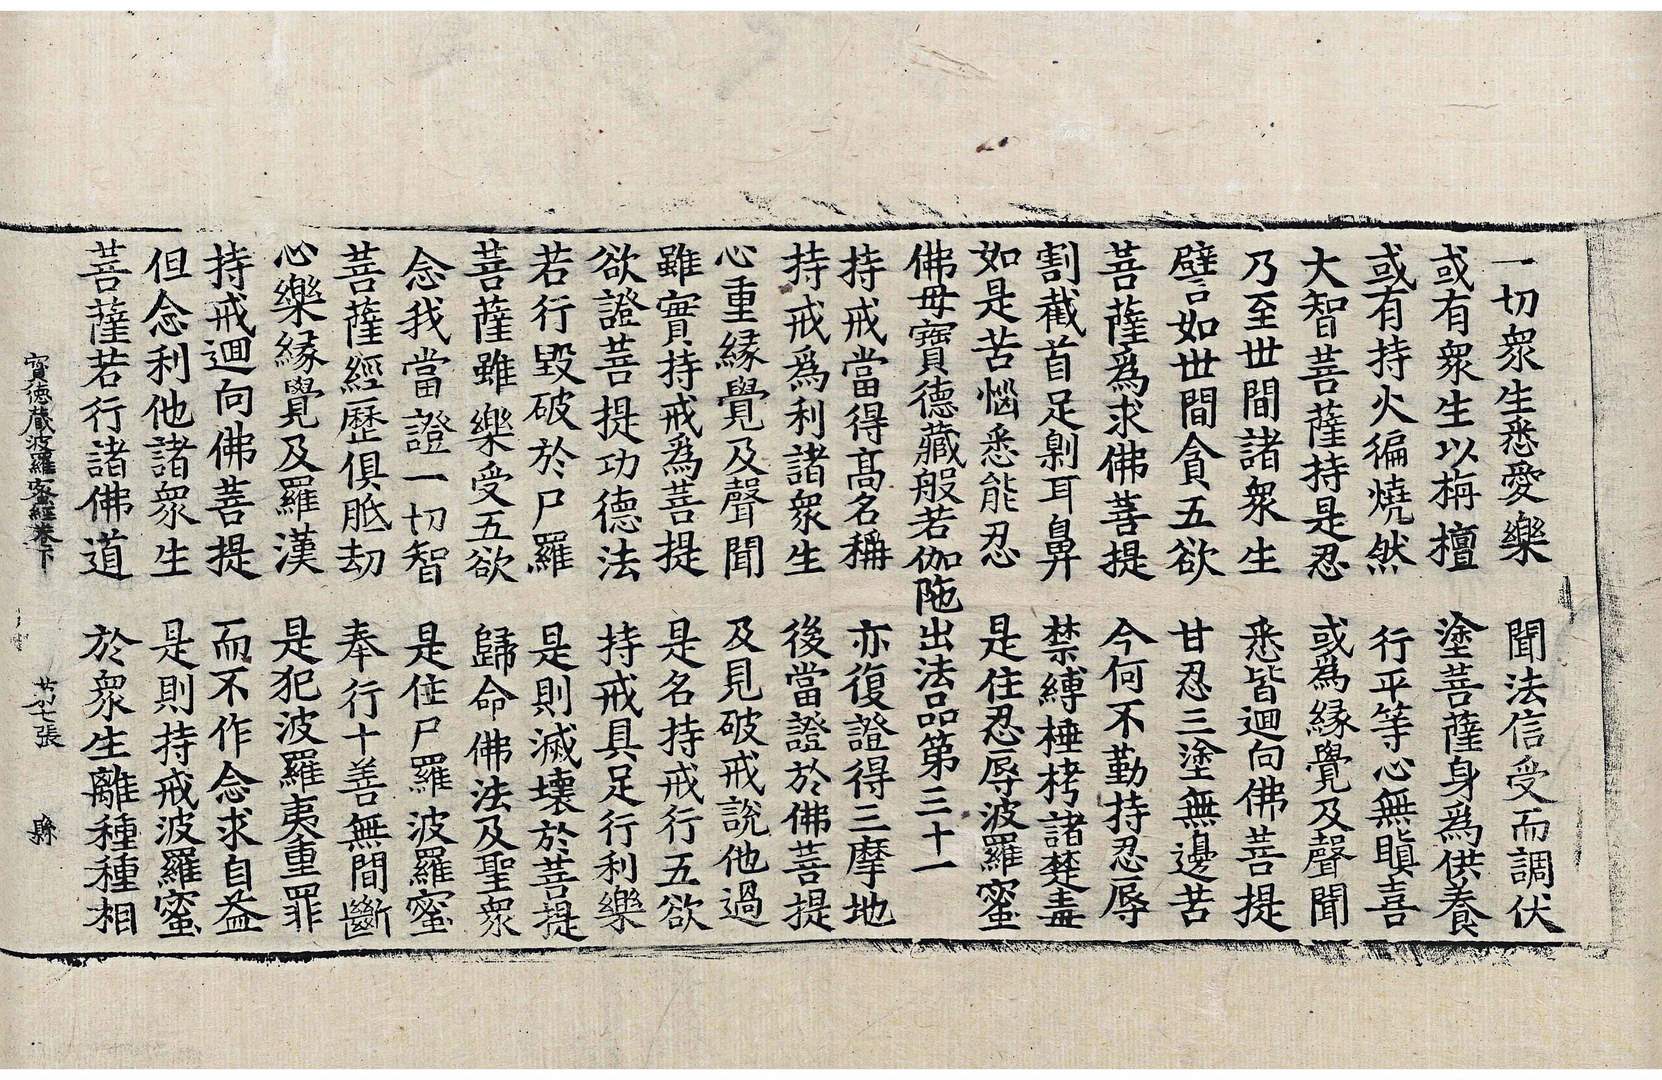 一切衆生悉愛樂　聞法信受而調伏
或有衆生以栴檀　塗菩薩身爲供養
或有持火徧燒然　行平等心無瞋喜
大智菩薩持是忍　或爲緣覺及聲聞
乃至世間諸衆生　悉皆迴向佛菩提
譬如世間貪五欲　甘忍三塗無邊苦
菩薩爲求佛菩提　今何不勤持忍辱
割截首足劓耳鼻　禁縛棰拷諸楚毒
如是苦惱悉能忍　是住忍辱波羅蜜
佛母寶德藏般若伽陁出法品第三十一
持戒當得髙名稱　亦復證得三摩地
持戒爲利諸衆生　後當證於佛菩提
心重緣覺及聲聞　及見破戒說他過
雖實持戒爲菩提　是名持戒行五欲
欲證菩提功德法　持戒具足行利樂
若行毀破於尸羅　是則滅壞於菩提
菩薩雖樂受五欲　歸命佛法及聖衆
念我當證一切智　是住尸羅波羅蜜
菩薩經歷俱胝劫　奉行十善無間斷
心樂緣覺及羅漢　是犯波羅夷重罪
持戒迴向佛菩提　而不作念求自益
但念利他諸衆生　是則持戒波羅蜜
菩薩若行諸佛道　於衆生離種種相
寳德藏波羅蜜經卷下　廿七張　縣